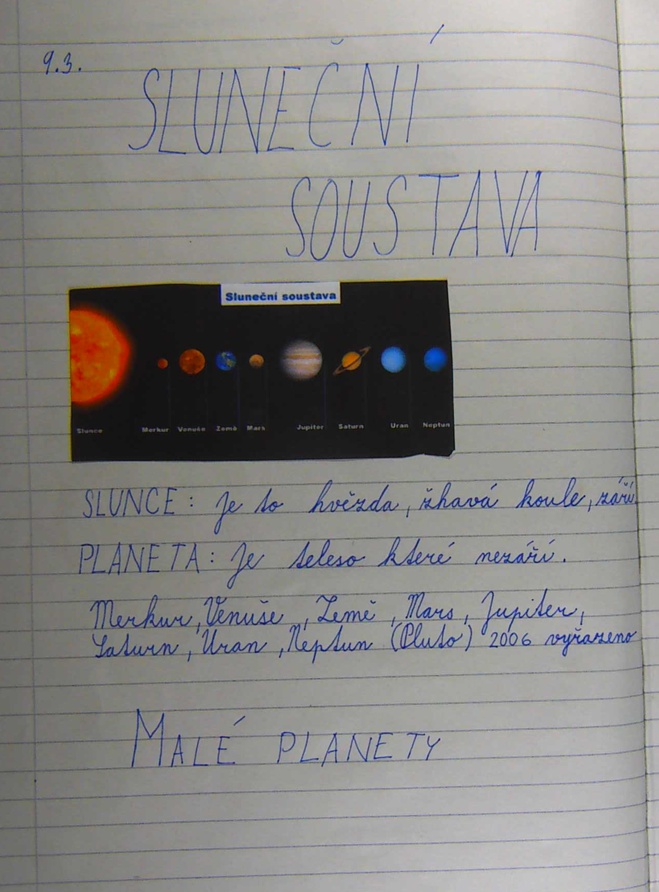 9.3.
SLUNEČNÍ
SOUSTAVA
Sluneční soustava
Slunce Merkur Venuše Země Mars Jupiter Saturn Uran Neptun
SLUNCE: Je to hvězda, žhavá koule, září
PLANETA: Je teleso které nezáří.
Merkur, Venuše, Země, Mars, Jupiter,
Saturn, Uran, Neptun (Pluto) 2006 vyřazeno
MALÉ PLANETY